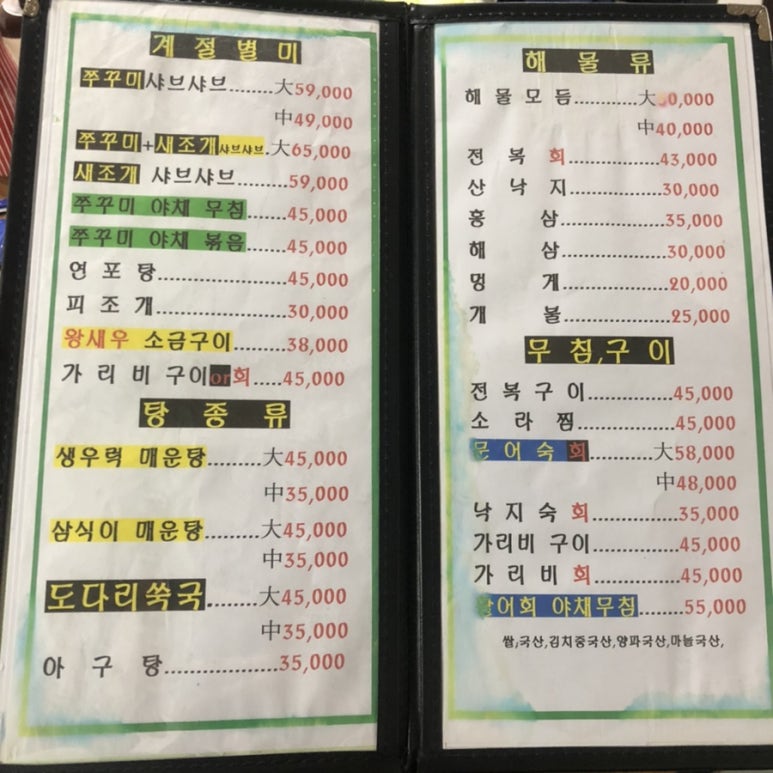 계절별미
쭈꾸미샤브샤브.......大59,000
中49,000
쭈꾸미+새조개샤브샤브.大65,000
새조개 샤브샤브........59,000
쭈꾸미 야채 무침......45,000
쭈꾸미 야채 볶음......45,000
연포탕...................45,000
피조개...................30,000
왕새우 소금구이........38,000
가리비 구이or회.....45,000
탕종류
생우럭 매운탕.........大45,000
中35,000
삼식이 매운탕.........大45,000
中35,000
도다리쑥국........大45,000
中35,000
아구탕.................35,000
해물류
해물모듬............大
中40,000
전복회.................43,000
산낙지.................30,000
홍삼...................35,000
해삼...................30,000
멍게...................20,000
개불...................25,000
무침,구이
전복구이...............45,000
소라찜.................45,000
문어숙회............大58,000
中48,000
낙지숙회...............35,000
가리비 구이.............45,000
가리비회...............45,000
야채무침........55,000
쌀,국산,김치중국산,양파국산,마늘국산,